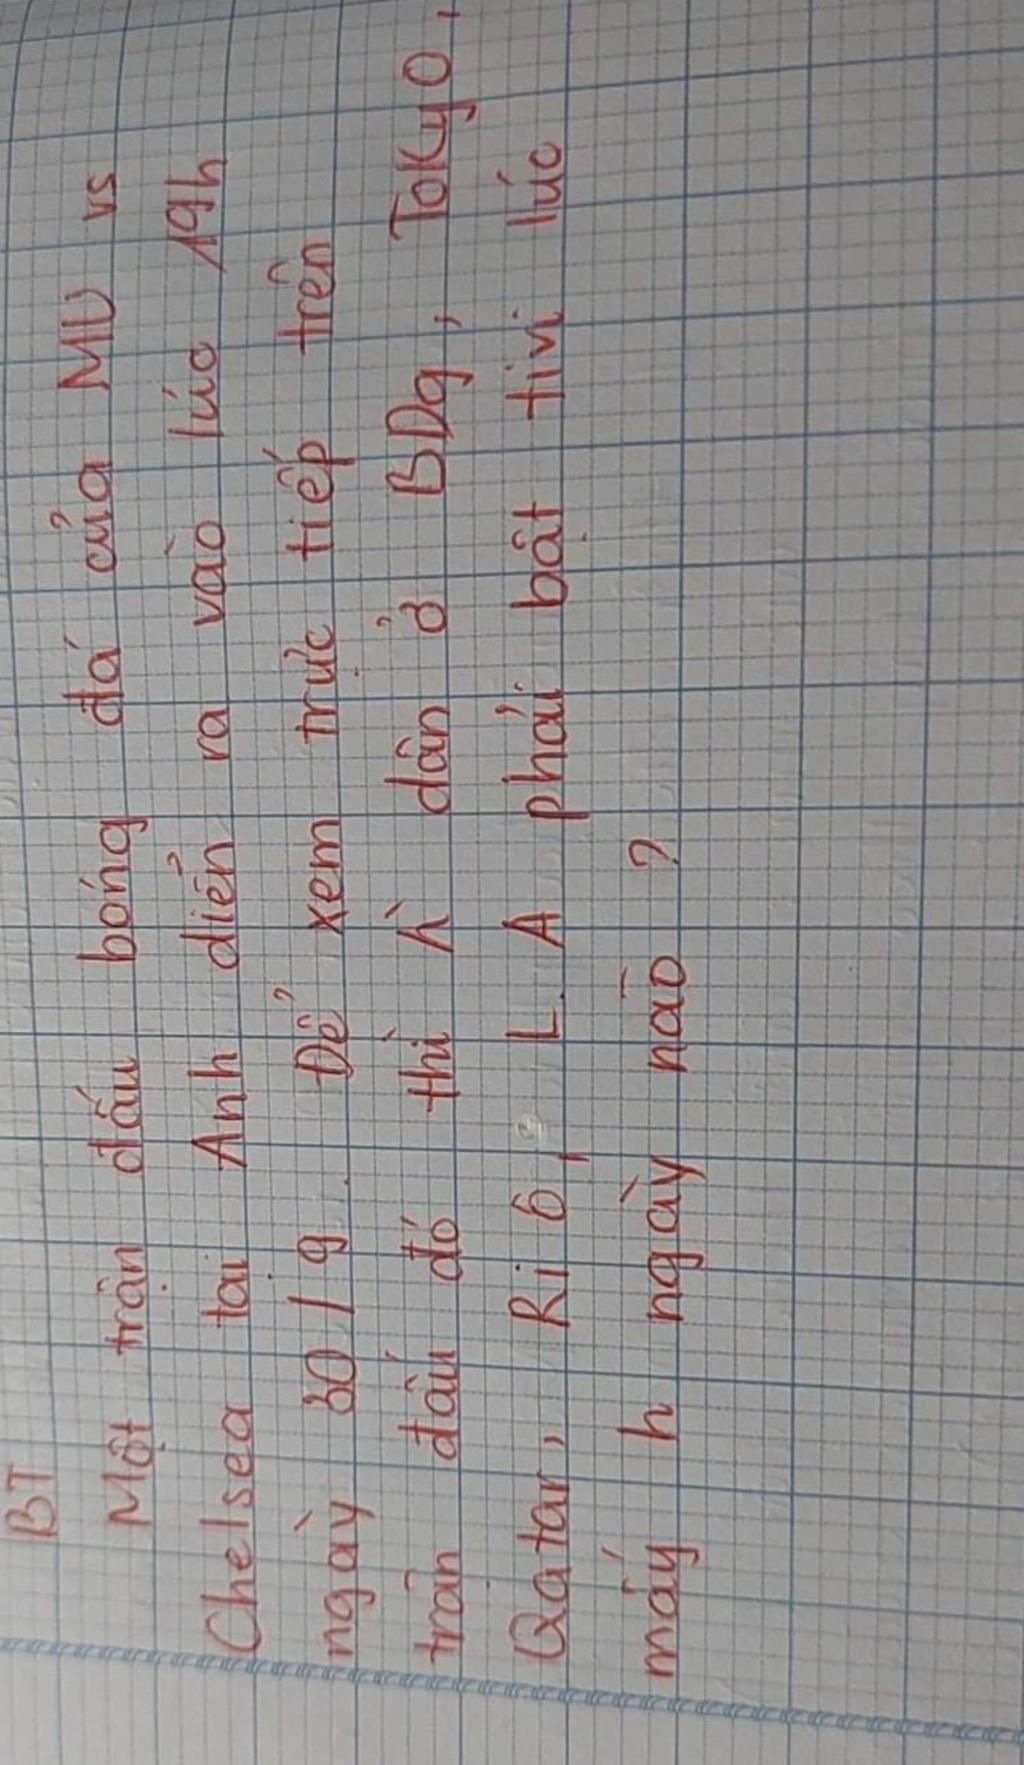 BT
Một trận đấu bóng đá của MU vs
Chelsea tại Anh diển ra vào lúc 19h
ngày 30/9. Để xem trực tiếp trên
trận đấu đó thì dân ở BDg, Tokyo,
Qatar, Riô, L.A phải bật tivi lúc
mấy h ngày nào?